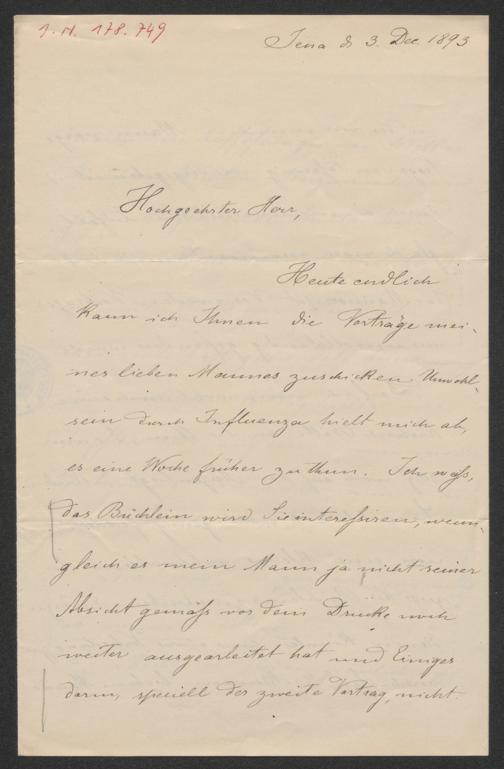 I. N. 178.749
Jena d 3. Dec. 1893
Hochgeehrter Herr,
Heute endlich
kann ich Ihnen die Vorträge mei-
nes lieben Mannes zuschicken Unwohl-
sein durch Influenza hielt mich ab,
es eine Woche früher zu thun. Ich weiß,
das Büchlein wird Sie interessiren, wenn-
gleich es mein Mann ja nicht seiner
Absicht gemäß vor dem Drucke noch
weiter ausgearbeitet hat und Einiges
darin, speciell der zweite Vortrag, nicht